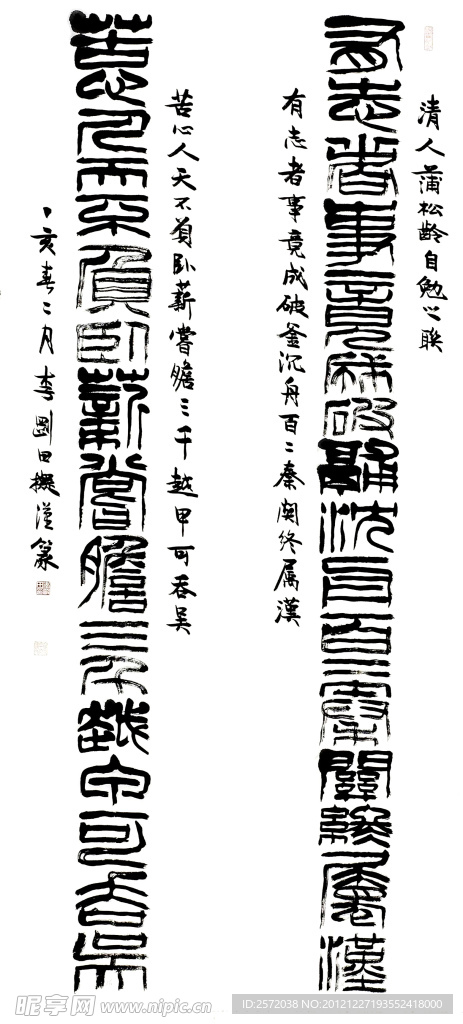 清人蒲松龄自勉之联
有志者事竟成破釜沉舟百二秦關終屬漢
有志者事竟成破釜沉舟百二秦関终属漢
苦心人天不負卧薪嘗膽三千越甲可吞吴
苦心人天不負卧薪嘗膽三千越甲可吞吴
丁亥春二月李剛田擬漢篆
昵享网 www.nipic.cn
ID:2572038 NO:20121227193552418000